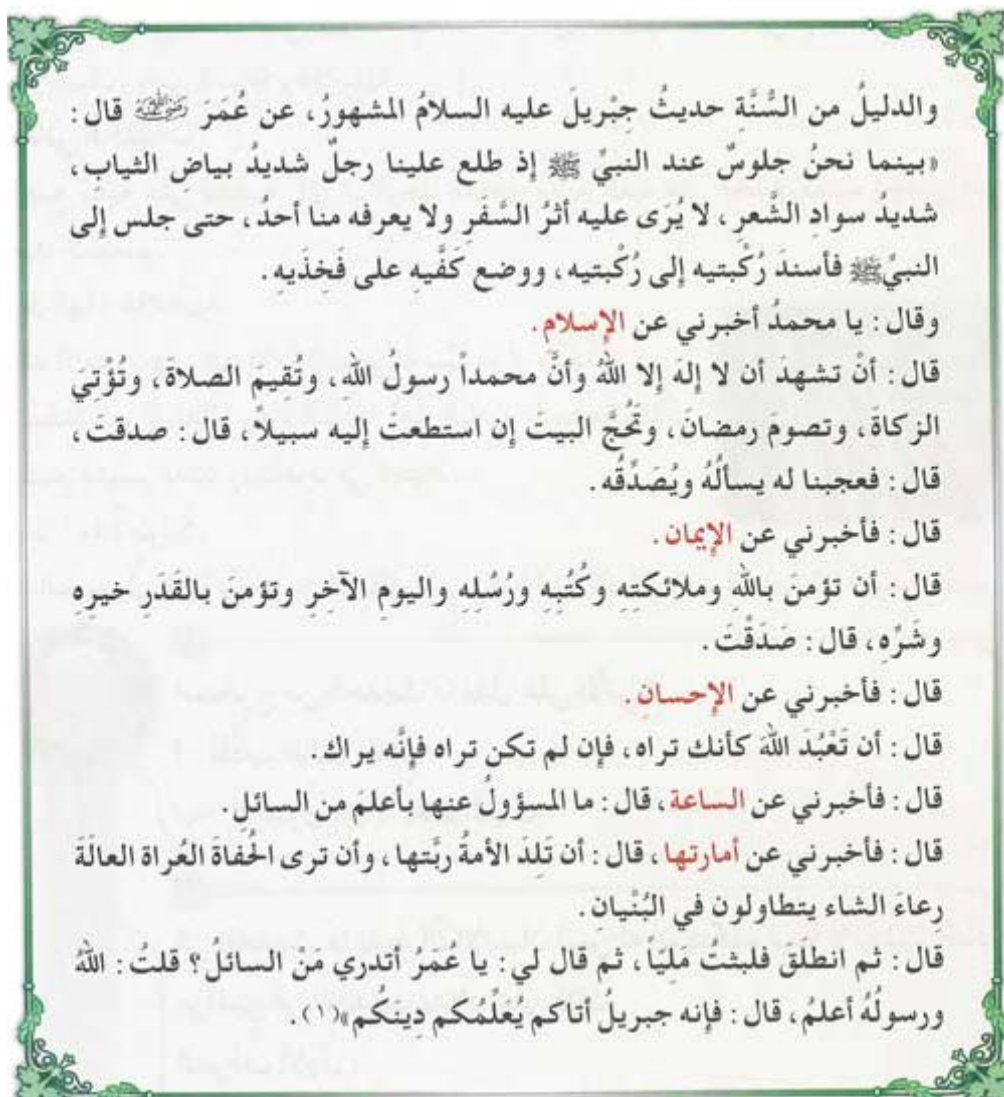 والدليلُ من السُّنَّةِ حديثُ جِبْريلَ عليه السلامُ المشهورُ، عن عُمَرَ رضي الله عنه قال:
«بينما نحنُ جلوسٌ عند النبيِّ ﷺ إذ طلع علينا رجلٌ شديدُ بياض الثياب،
شديدُ سوادِ الشَّعرِ، لا يُرَى عليه أثرُ السَّفَرِ ولا يعرفه منا أحدٌ، حتى جلس إلى
النبيِّ ﷺ فأسندَ رُكْبتيه إلى رُكْبتيه، ووضع كَفَّيهِ على فَخِذَيهِ.
وقال: يا محمدُ أخبرني عن الإسلام.
قال: أنْ تشهدَ أن لا إله إلا اللهُ وأنَّ محمداً رسولُ اللهِ، وتُقيمَ الصلاةَ، وتُؤتيَ
الزكاةَ، وتصومَ رمضانَ، وتَحُجَّ البيتَ إن استطعت إليه سبيلاً، قال: صدقتَ،
قال: فعجبنا له يسألُهُ ويُصَدِّقُه.
قال: فأخبرني عن الإيمان.
قال: أن تؤمنَ بالله وملائكتِه وكُتُبِه ورُسُلِهِ واليومِ الآخرِ وتؤمنَ بالقَدَرِ خيرِهِ
وشَرِّهِ، قال: صَدَقْتَ.
قال: فأخبرني عن الإحسانِ.
قال: أن تَعْبُدَ اللهَ كأنك تراه، فإن لم تكن تراه فإنَّه يراك.
قال: فأخبرني عن الساعة، قال: ما المسؤولُ عنها بأعلمَ من السائلِ.
قال: فأخبرني عن أمارتها، قال: أن تَلِدَ الأمةُ ربَّتها، وأن ترى الحُفاةَ العُراةَ العالَةَ
رِعاءَ الشاء يتطاولون في البُنْيانِ.
قال: ثم انطلقَ فلبثتُ مَلِيّا، ثم قال لي: يا عُمَرُ أتدري مَنْ السائلُ؟ قلتُ: اللهُ
ورسولُهُ أعلمُ، قال: فإنه جبريلُ أتاكم يُعَلِّمُكم دِينَكُم»(١).